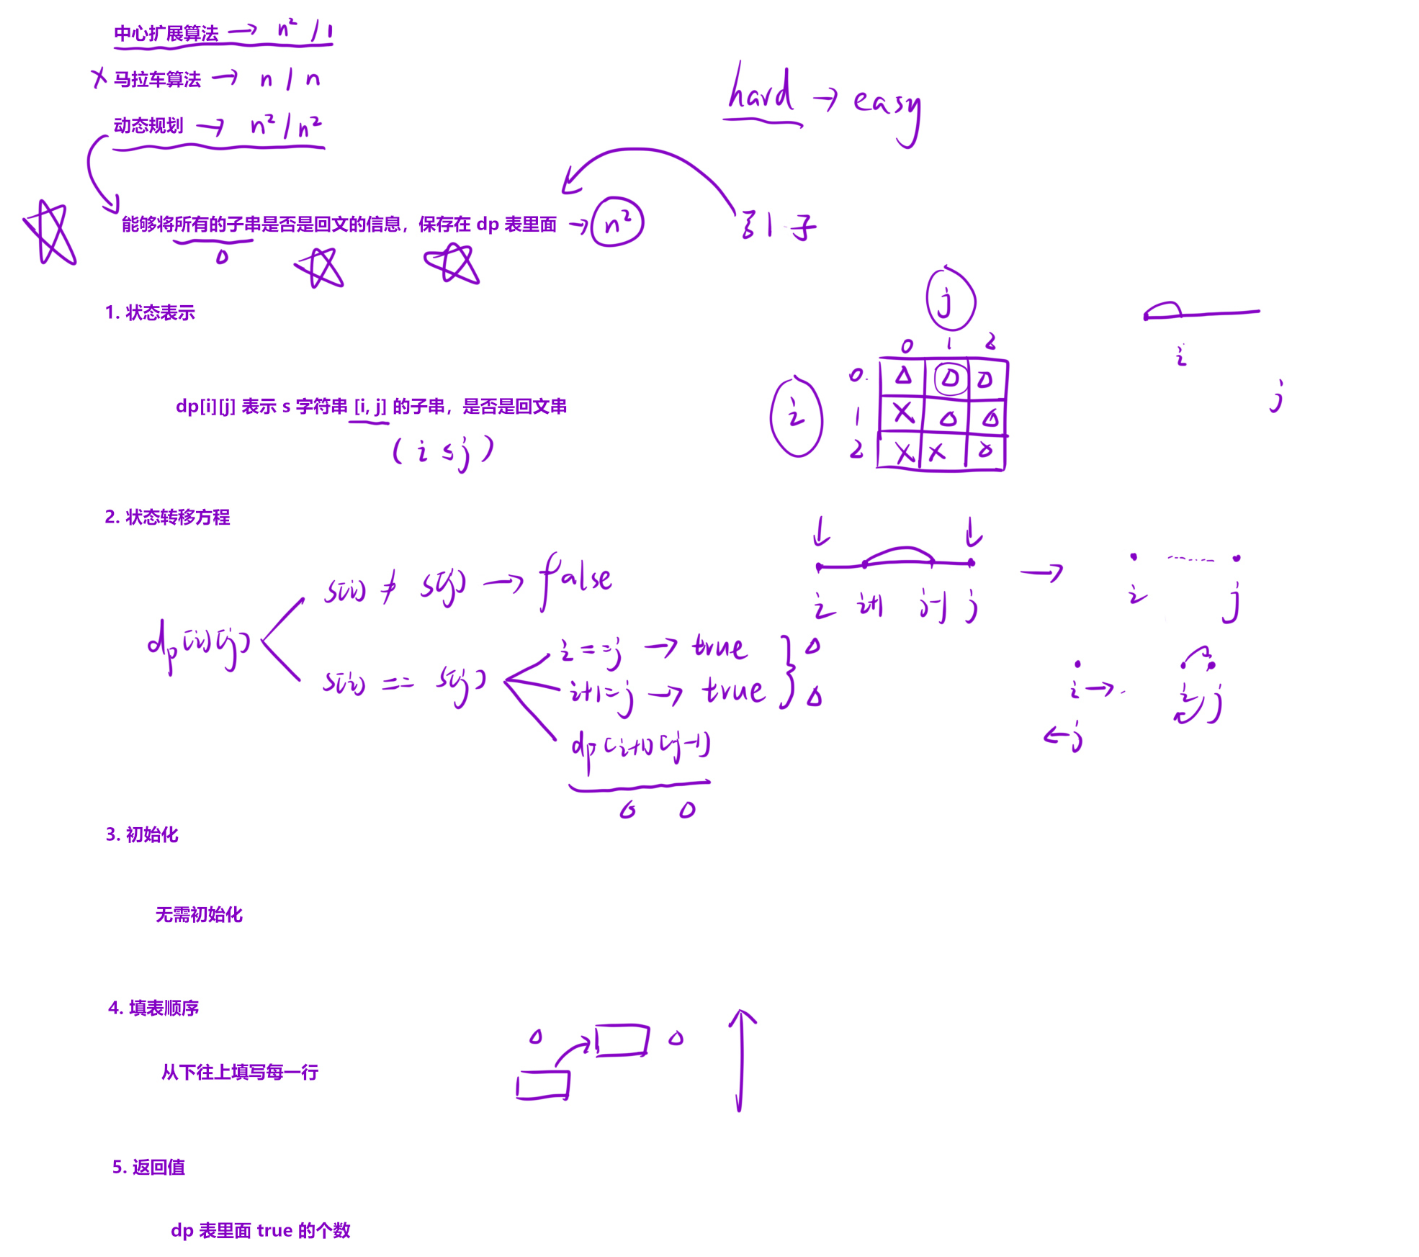 中心扩展算法 → n² / 1
× 马拉车算法 → n / n
动态规划 → n² / n²
hard → easy
能够将所有的子串是否是回文的信息，保存在 dp 表里面 → n²
引子
1. 状态表示
j
0 1 2
i
0
1
2
i
j
dp[i][j] 表示 s 字符串 [i, j] 的子串，是否是回文串
( i ≤ j )
2. 状态转移方程
s[i] ≠ s[j] → false
dp[i][j]
s[i] == s[j]
i == j → true
i+1 = j → true
dp[i+1][j-1]
i i+1 j-1 j → i j
i →
← j
i j
3. 初始化
无需初始化
4. 填表顺序
从下往上填写每一行
5. 返回值
dp 表里面 true 的个数